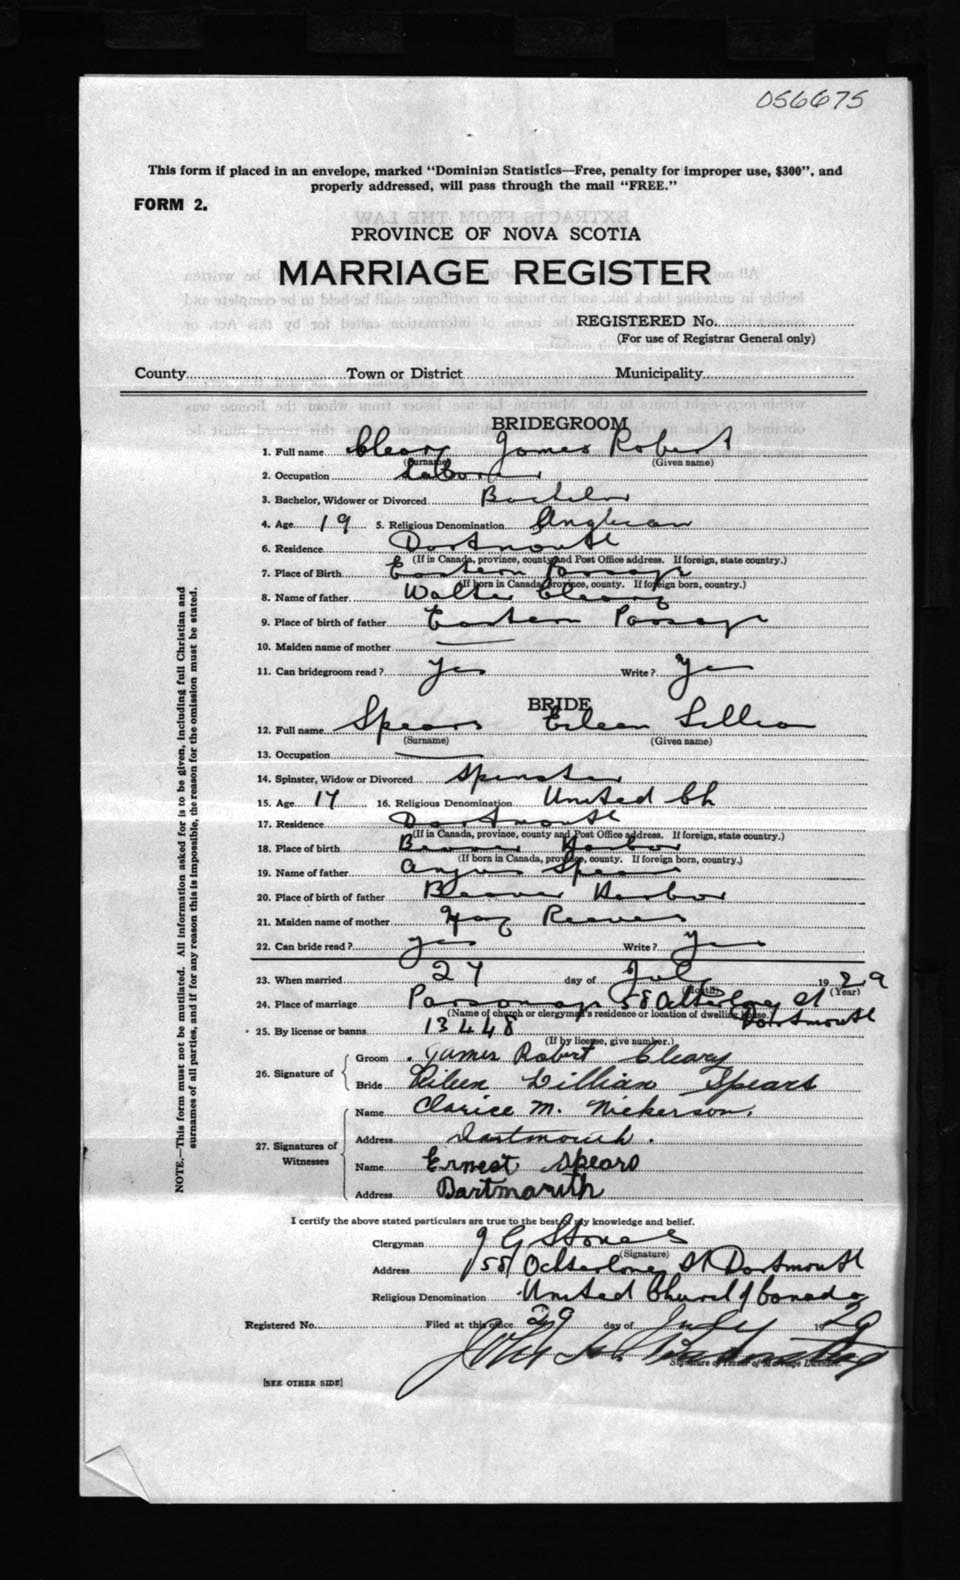 056675
This form if placed in an envelope, marked "Dominion Statistics—Free, penalty for improper use, $300", and
properly addressed, will pass through the mail "FREE."
FORM 2.
PROVINCE OF NOVA SCOTIA
MARRIAGE REGISTER
REGISTERED No.
(For use of Registrar General only)
County Town or District Municipality
BRIDEGROOM
1. Full name Cleary James Robert
(Surname) (Given name)
2. Occupation Laborer
3. Bachelor, Widower or Divorced Bachelor
4. Age 19 5. Religious Denomination Anglican
6. Residence Dartmouth
(If in Canada, province, county and Post Office address. If foreign, state country.)
7. Place of Birth Eastern Passage
(If born in Canada, province, county. If foreign born, country.)
8. Name of father Walter Cleary
9. Place of birth of father Eastern Passage
10. Maiden name of mother —
11. Can bridegroom read? Yes Write? Yes
BRIDE
12. Full name Spears Eileen Lillian
(Surname) (Given name)
13. Occupation —
14. Spinster, Widow or Divorced Spinster
15. Age 17 16. Religious Denomination United Ch
17. Residence Dartmouth
(If in Canada, province, county and Post Office address. If foreign, state country.)
18. Place of birth Beaver Harbor
(If born in Canada, province, county. If foreign born, country.)
19. Name of father Angus Spears
20. Place of birth of father Beaver Harbor
21. Maiden name of mother Reeves
22. Can bride read? yes Write? Yes
23. When married 27 day of July 1929
(Month) (Year)
24. Place of marriage Parsonage 58 Ochterloney St
(Name of church or clergyman's residence or location of dwelling house.) Dartmouth
25. By license or banns 13448
(If by license, give number.)
26. Signature of Groom James Robert Cleary
Bride Eileen Lillian Spears
27. Signatures of Witnesses
Name Clarice M. Nickerson.
Address Dartmouth.
Name Ernest Spears
Address Dartmouth
I certify the above stated particulars are true to the best of my knowledge and belief.
Clergyman J G Stones
(Signature)
Address 58 Ochterloney St Dartmouth
Religious Denomination United Church of Canada
Registered No. Filed at this office 29 day of July 1929
John
Signature of Issuer of Marriage Licenses.
[SEE OTHER SIDE]
NOTE.—This form must not be mutilated. All information asked for is to be given, including full Christian and
surnames of all parties, and if for any reason this is impossible, the reason for the omission must be stated.